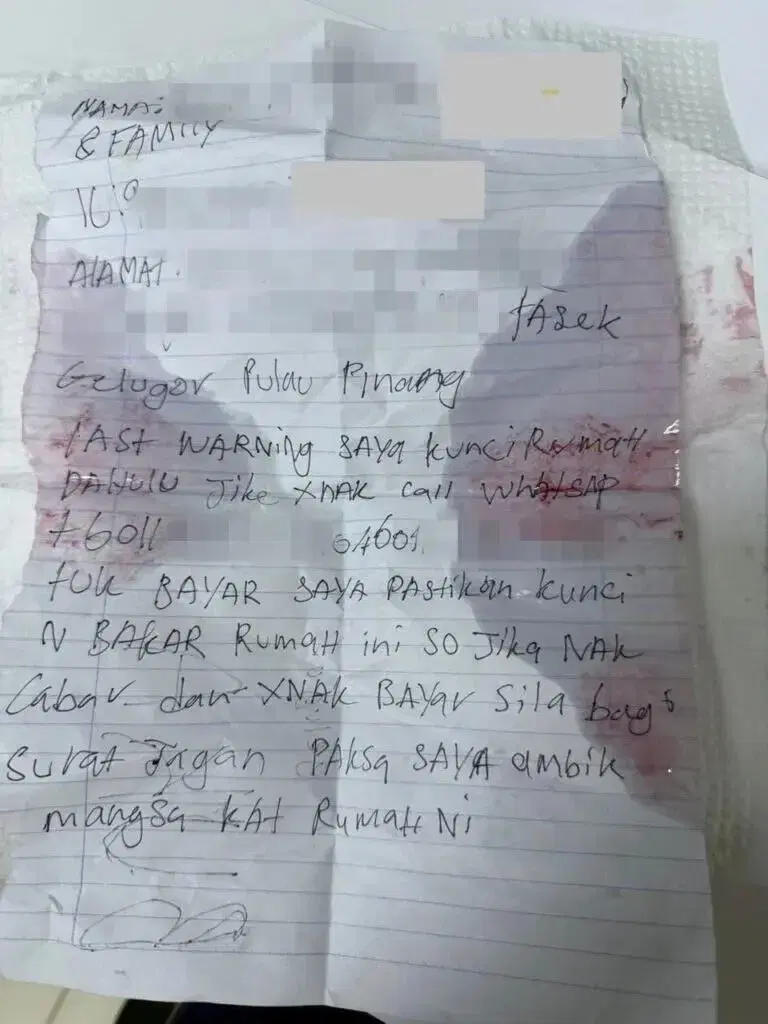 NAMA:
& FAMILY
IC:
ALAMAT.
tAsek
Gelugor Pulau Pinang
lAst WARNing SAYA kunci RumaH
DAHULU Jike XNAK call WhatsAP
+6011 64601
tUK BAYAR SAYA PAStikan kunci
N BAKAR RumaH ini SO Jika NAK
Cabar dan XNAK BAYar Sila bagi
Surat Jagan PAksa SAYA ambik
mangsa KAt RumaH Ni